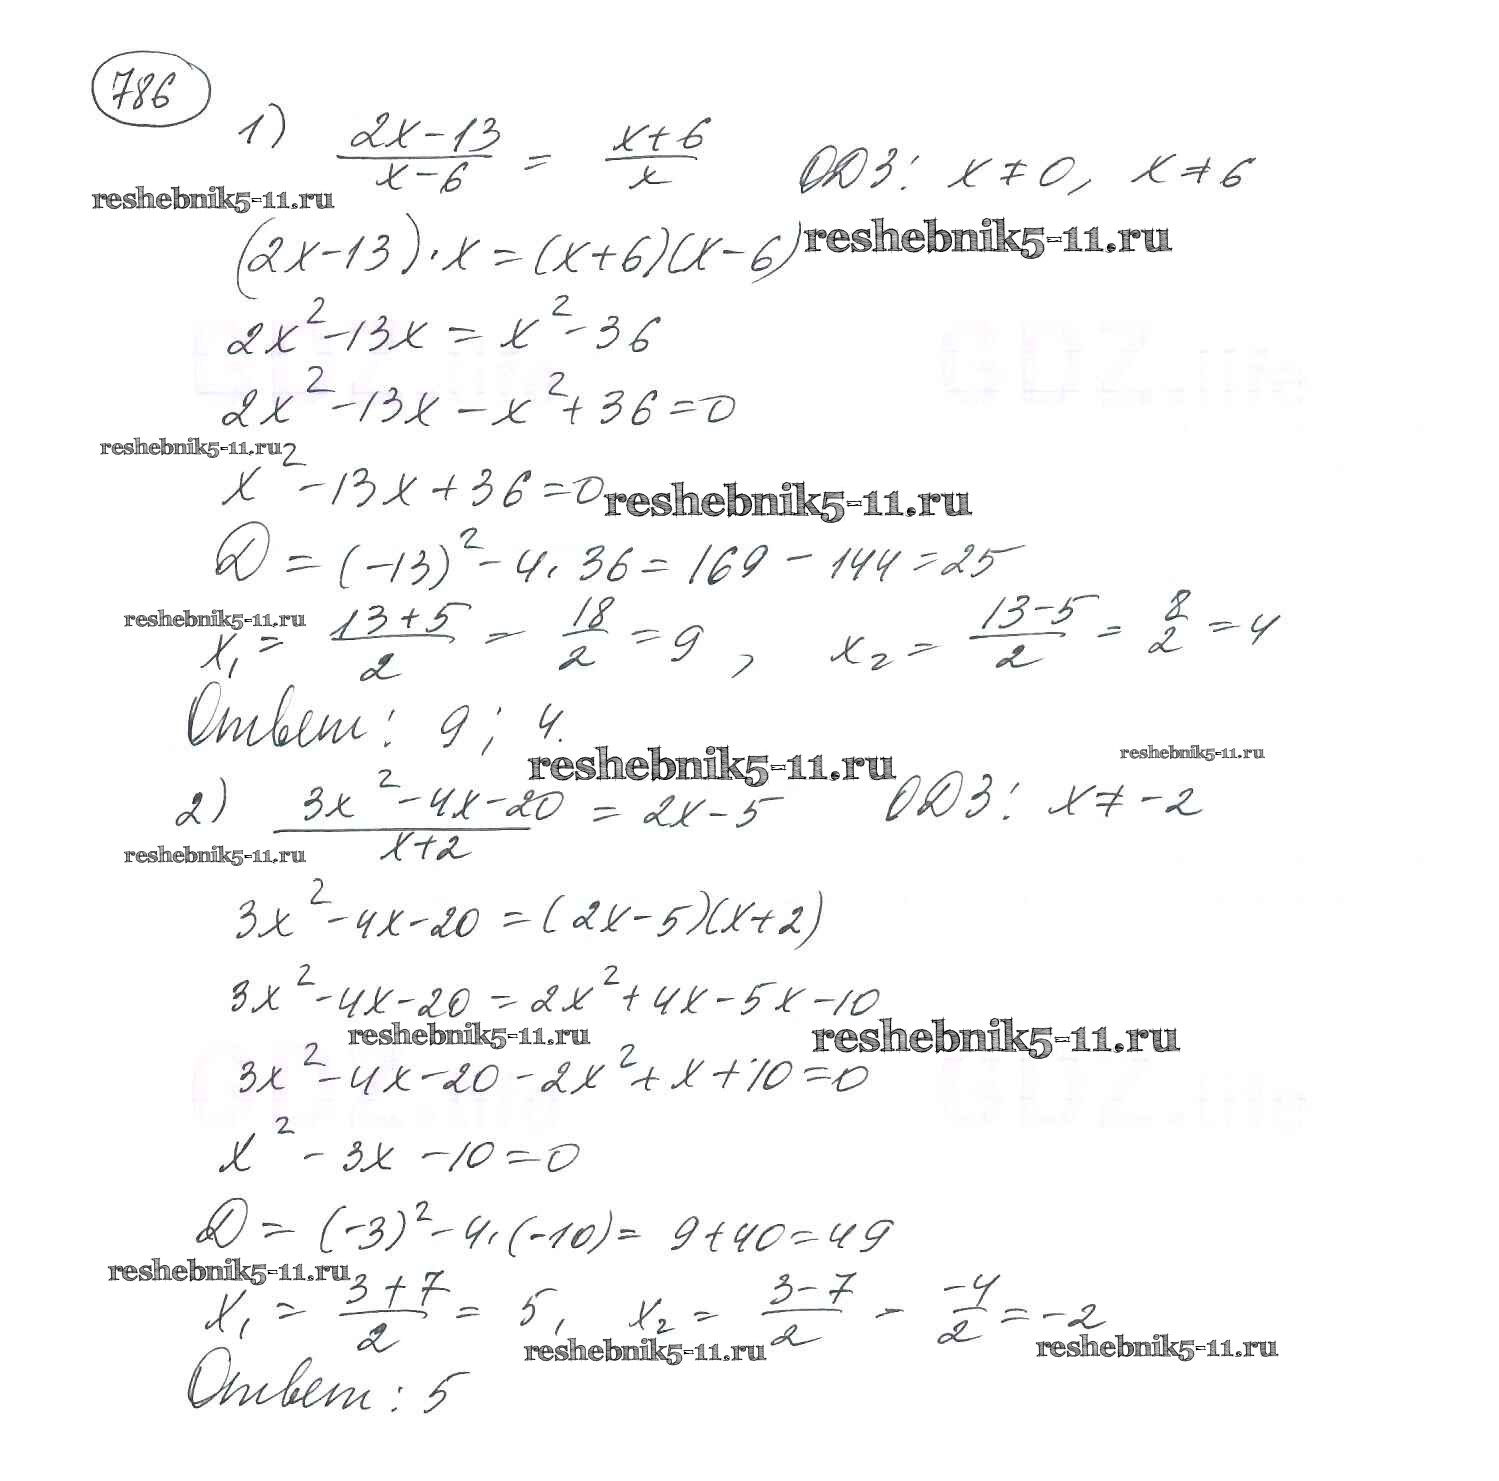 786
1) (2x-13)/(x-6) = (x+6)/x ОДЗ: x≠0, x≠6
reshebnik5-11.ru
(2x-13)·x=(x+6)(x-6) reshebnik5-11.ru
2x²-13x=x²-36
GDZ.life GDZ.life
2x²-13x-x²+36=0
reshebnik5-11.ru
x²-13x+36=0 reshebnik5-11.ru
D=(-13)²-4·36=169-144=25
reshebnik5-11.ru
x₁=(13+5)/2=18/2=9, x₂=(13-5)/2=8/2=4
Ответ: 9; 4.
reshebnik5-11.ru reshebnik5-11.ru
2) (3x²-4x-20)/(x+2) = 2x-5 ОДЗ: x≠-2
reshebnik5-11.ru
3x²-4x-20=(2x-5)(x+2)
3x²-4x-20=2x²+4x-5x-10
reshebnik5-11.ru reshebnik5-11.ru
3x²-4x-20-2x²+x+10=0
GDZ.life GDZ.life
x²-3x-10=0
D=(-3)²-4·(-10)=9+40=49
reshebnik5-11.ru
x₁=(3+7)/2=5, x₂=(3-7)/2=-4/2=-2
reshebnik5-11.ru reshebnik5-11.ru
Ответ: 5